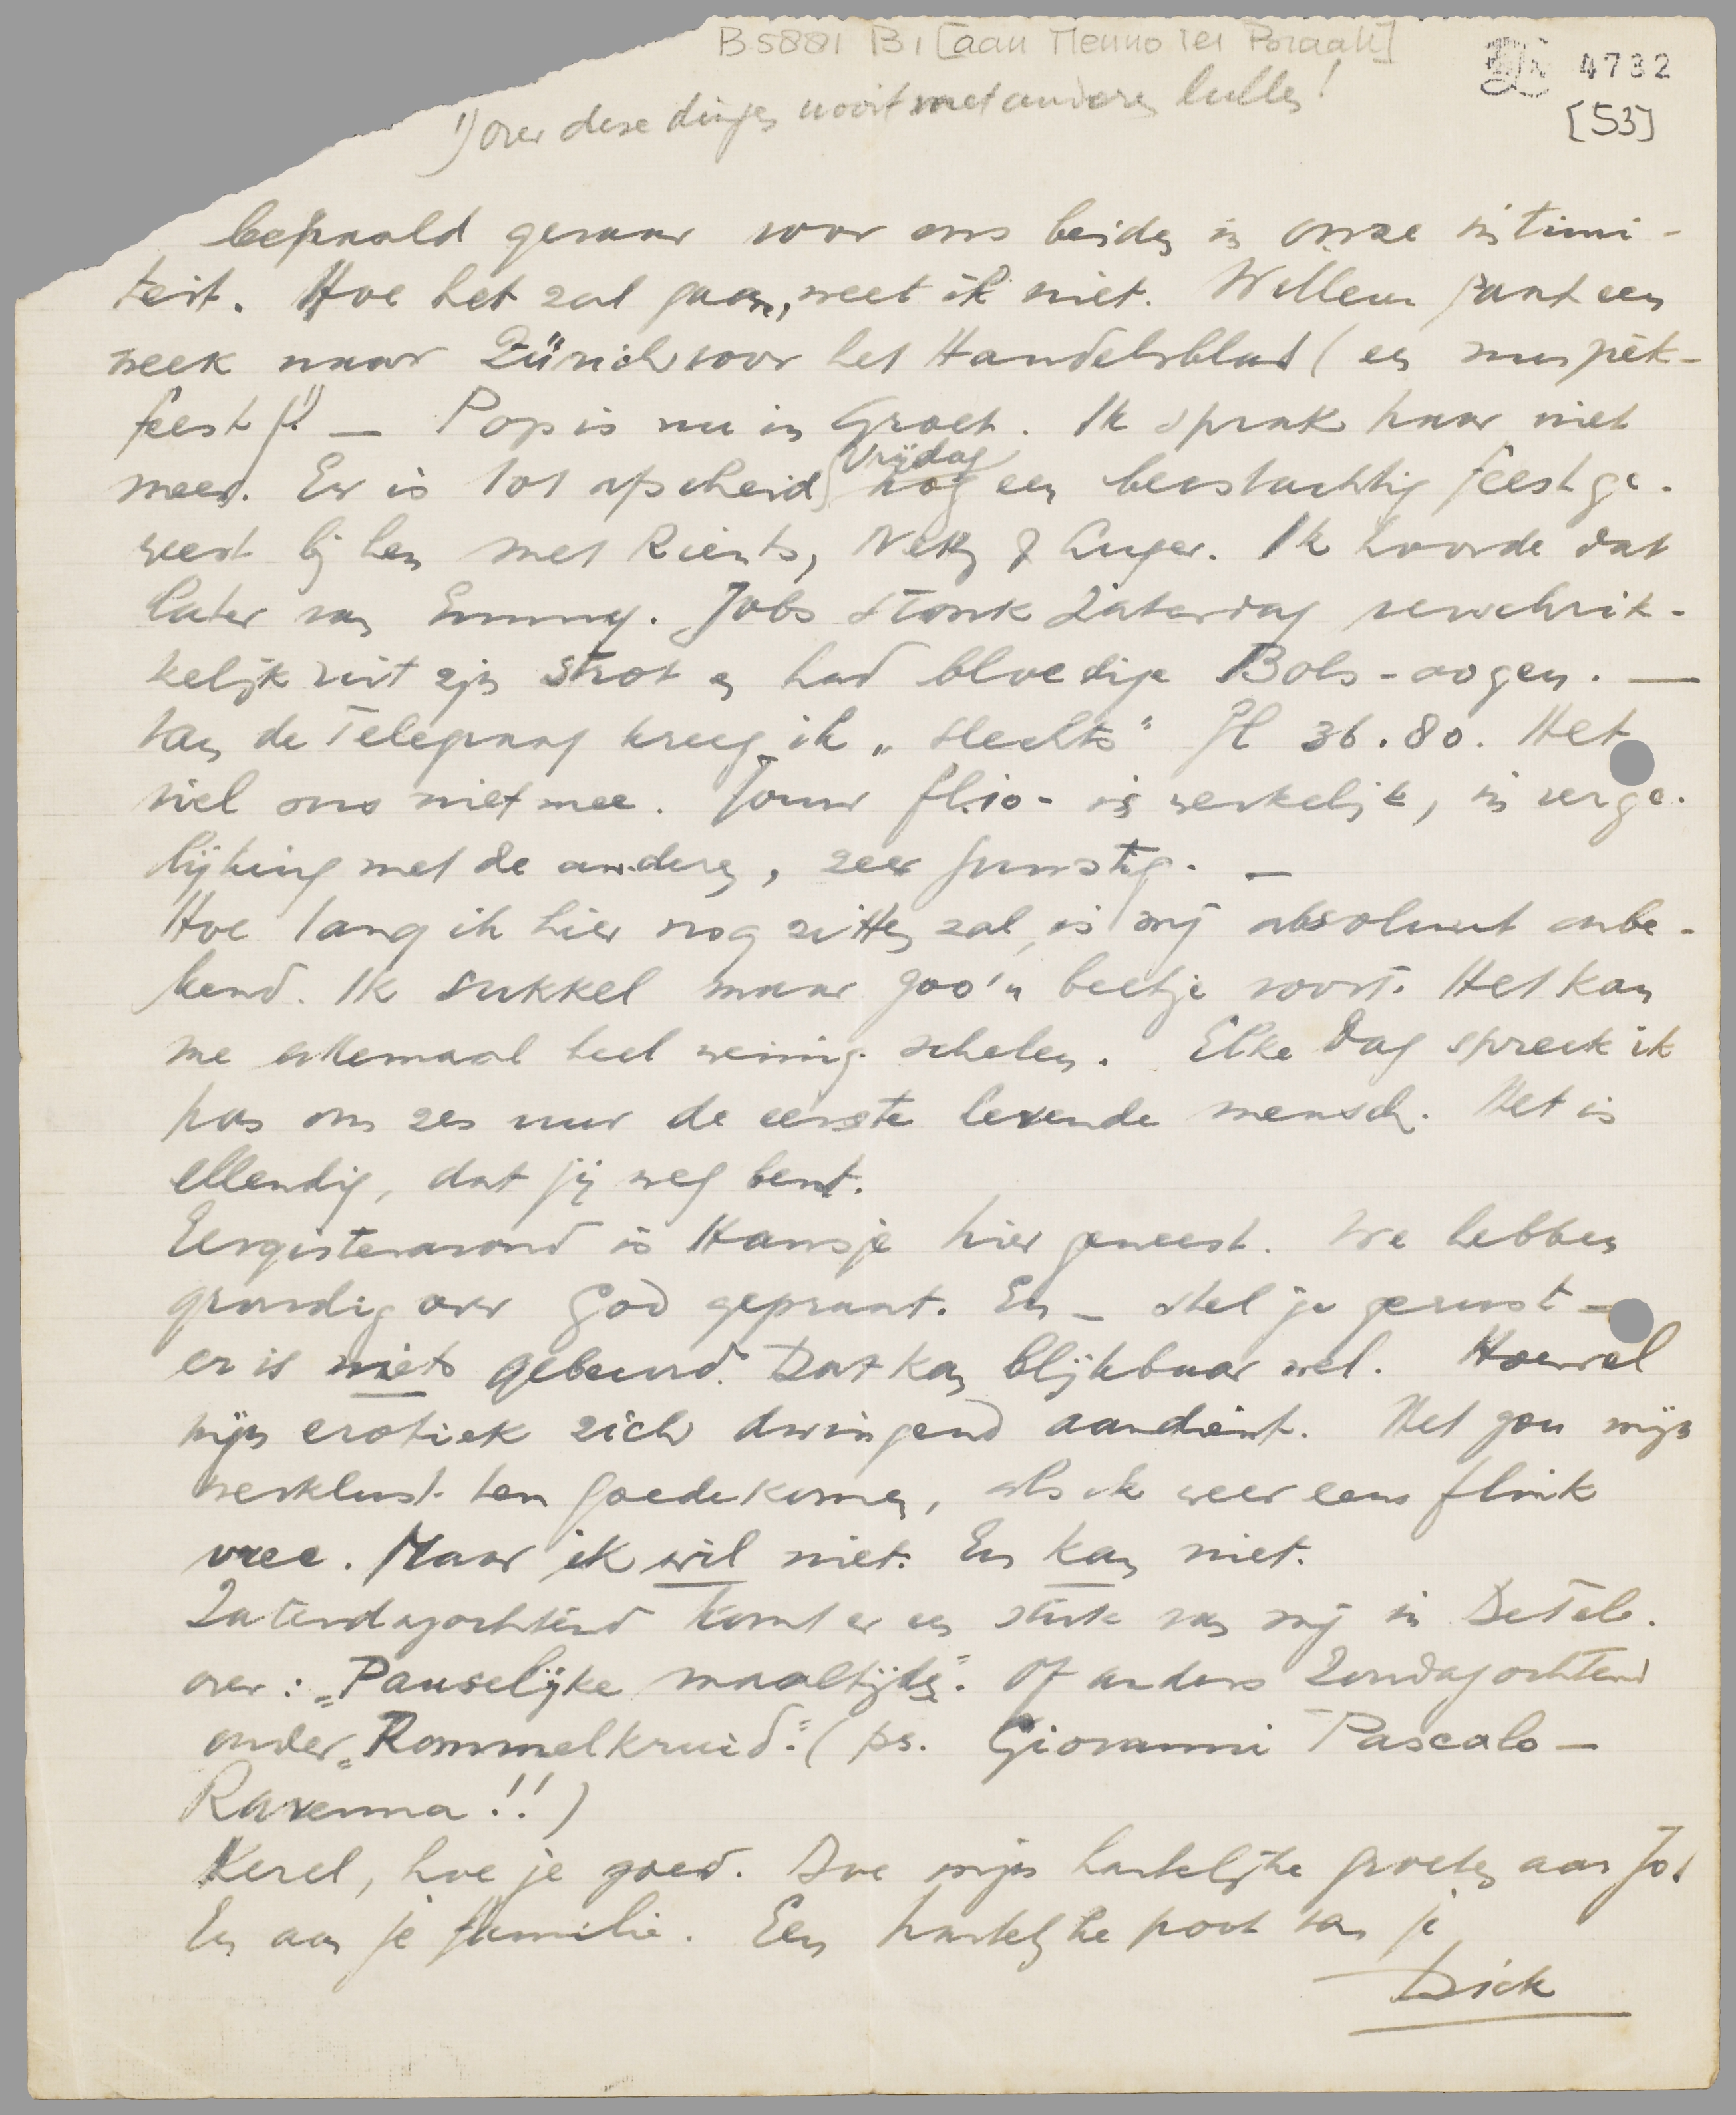 B 5881 B 1 [aan Menno ter Braak]
4732
[53]
1) over deze dingen nooit met anderen lullen!
bepaald gevaar voor ons beiden in onze intimi-
teit. Hoe het zal gaan, weet ik niet. Willem gaat een
week naar Zürich voor het Handelsblad (en
feest)! — Pop is nu in Groet. Ik sprak haar niet
meer. Er is tot afscheid Vrijdag nog een beestachtig feest ge-
weest bij hen met Rients, Nelly & Auger. Ik hoorde dat
later van Emmy. Jobs stonk Zaterdag verschrik-
kelijk uit zijn strot en had bloedige Bols-oogen. —
Van de Telegraaf kreeg ik „slechts" fl 36.80. Het
viel ons niet mee. Jouw fl. 10- is werkelijk, in verge-
lijking met de andere, zeer gunstig. —
Hoe lang ik hier nog zitten zal, is mij absoluut onbe-
kend. Ik sukkel maar zoo'n beetje voort. Het kan
me allemaal heel weinig schelen. Elke dag spreek ik
pas om zes uur de eerste levende mensch. Het is
ellendig, dat jij weg bent.
Eergisteravond is Hansje hier geweest. We hebben
grondig over God gepraat. En – stel je gerust –
er is niets gebeurd. Dat kan blijkbaar wel. Hoewel
mijn erotiek zich dwingend aandient. Het zou mijn
werklust ten goede komen, als ik weer eens flink
vree. Maar ik wil niet. En kan niet.
Zaterdagochtend komt er een stuk van mij in De Tel.
over: „Pauselijke maaltijden". Of anders Zondagochtend
onder „Rommelkruid". (ps. Giovanni Pascalo –
Ravenna!!)
Kerel, hoe je goed. Doe mijn hartelijke groeten aan Jo
En aan je familie. Een hartelijke poot van je
Dick